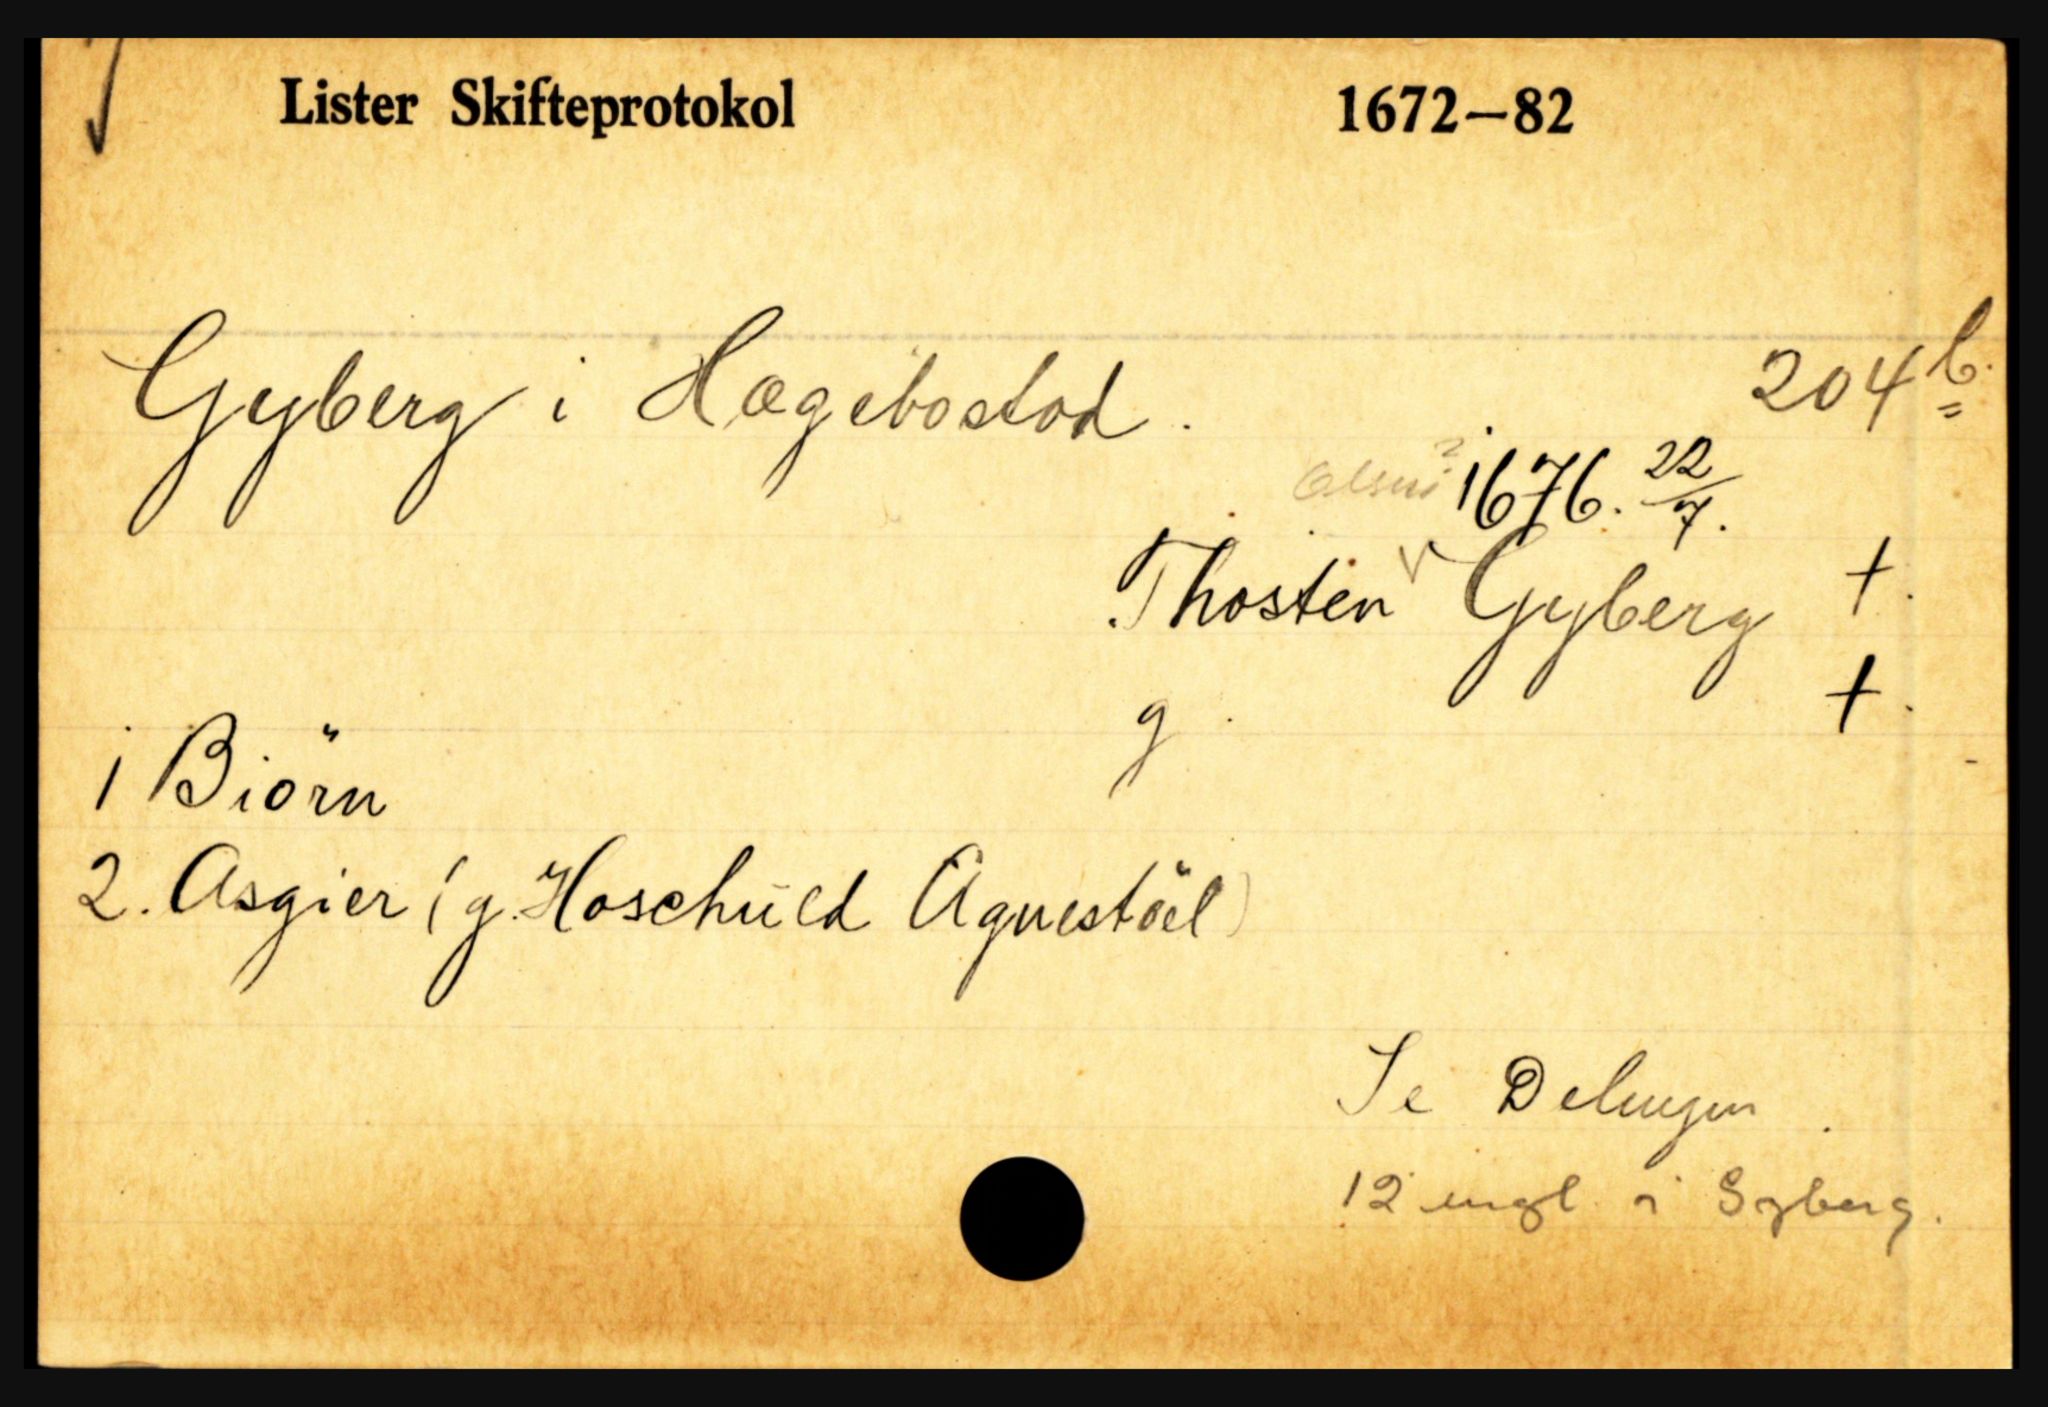 Lister Skifteprotokol 1672–82
Gyberg i Hægebostad. 204 b.
Olsen? 1676. 22/7.
Thosten Gyberg †.
g. †.
1 Biörn
2. Asgier (g. Hoschuld Agnestöel)
Se Delingen.
12 engl. i Gyberg.